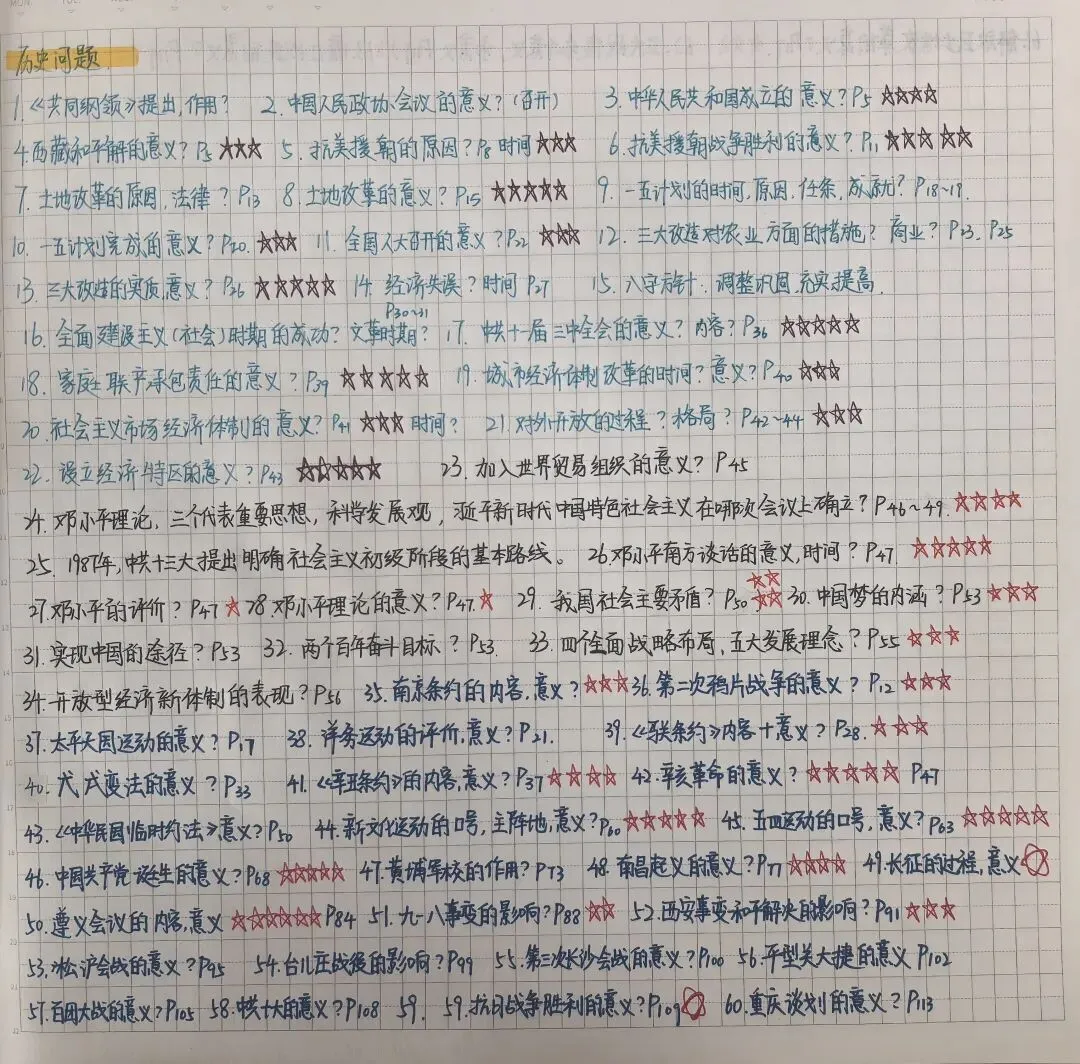 历史问题
1.《共同纲领》提出,作用? 2.中国人民政协会议的意义?(召开) 3.中华人民共和国成立的意义?P5 ☆☆☆☆
4.西藏和平解的意义?P5 ★★★ 5.抗美援朝的原因?P8 时间★★★ 6.抗美援朝战争胜利的意义?P11 ☆☆☆☆☆
7.土地改革的原因,法律?P13 8.土地改革的意义?P15 ★★★★★ 9.一五计划的时间,原因,任务,成就?P18~19
10.一五计划完成的意义?P20.★★★ 11.全国人大召开的意义?P22 ★★★ 12.三大改造对农业方面的措施?商业?P23.P25
13.三大改造的实质,意义?P26 ☆☆☆☆☆ 14.经济失误?时间 P27 15.八字方针:调整巩固充实提高
P30~31
16.全面建设主义(社会)时期的成功?文革时期? 17.中共十一届三中全会的意义?内容?P36 ☆☆☆☆☆
18.家庭联产承包责任的意义?P39 ☆☆☆☆☆ 19.城市经济体制改革的时间?意义?P40 ☆☆☆
20.社会主义市场经济体制的意义?P41 ★★★时间? 21.对外开放的过程?格局?P42~44 ★★★
22.设立经济特区的意义?P43 ☆☆☆☆☆ 23.加入世界贸易组织的意义?P45
24.邓小平理论,三个代表重要思想,科学发展观,习近平新时代中国特色社会主义在哪次会议上确立?P46~49.☆☆☆☆
25.1987年,中共十三大提出明确社会主义初级阶段的基本路线。 26.邓小平南方谈话的意义,时间?P47. ☆☆☆☆☆
27.邓小平的评价?P47★ 28.邓小平理论的意义?P47.★ 29.我国社会主要矛盾?P50☆☆☆☆ 30.中国梦的内涵?P53☆☆☆
31.实现中国的途径?P53 32.两个百年奋斗目标?P53. 33.四个全面战略布局,五大发展理念?P55☆☆☆
34.开放型经济新体制的表现?P56 35.南京条约的内容,意义?☆☆☆ 36.第二次鸦片战争的意义?P12☆☆☆
37.太平天国运动的意义?P17 38.洋务运动的评价,意义?P21. 39.《马关条约》内容+意义?P28.☆☆☆
40.戊戌变法的意义?P33 41.《辛丑条约》的内容,意义?P37☆☆☆☆ 42.辛亥革命的意义?☆☆☆☆☆ P47
43.《中华民国临时约法》意义?P50 44.新文化运动的口号,主阵地,意义?P60☆☆☆☆☆ 45.五四运动的口号,意义?P63☆☆☆☆☆
46.中国共产党诞生的意义?P68☆☆☆☆☆ 47.黄埔军校的作用?P73 48.南昌起义的意义?P77☆☆☆☆ 49.长征的过程,意义☆
50.遵义会议的内容,意义☆☆☆☆☆☆P84 51.九一八事变的影响?P88☆☆ 52.西安事变和平解决的影响?P91☆☆☆
53.淞沪会战的意义?P95 54.台儿庄战役的影响?P99 55.第三次长沙会战的意义?P100 56.平型关大捷的意义 P102
57.百团大战的意义?P105 58.中共七大的意义?P108 59. 59.抗日战争胜利的意义?P109☆ 60.重庆谈判的意义?P113